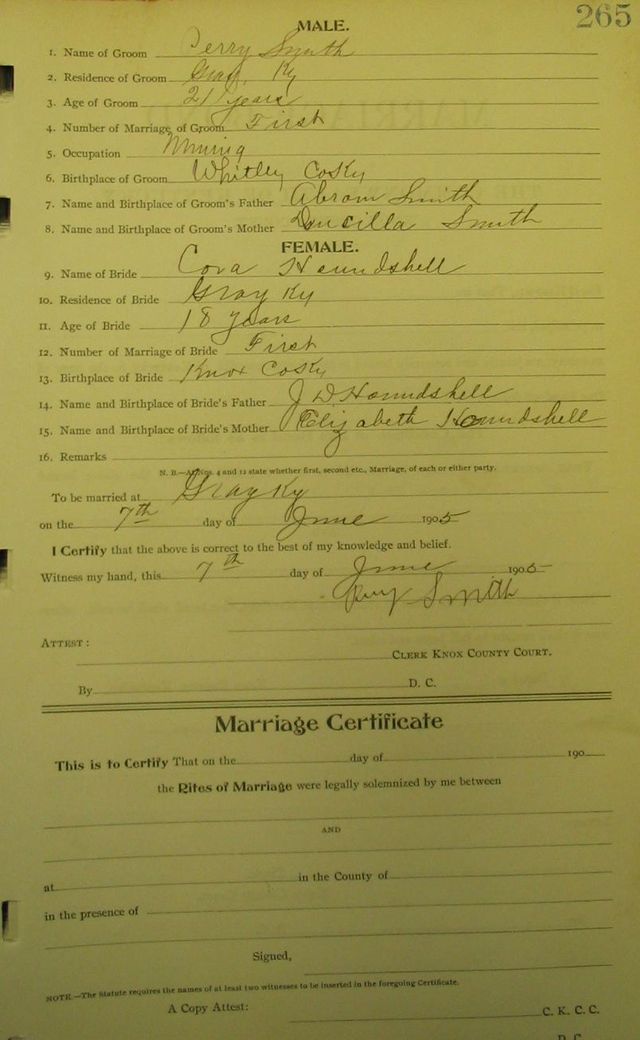 265
MALE.
1. Name of Groom Perry Smith
2. Residence of Groom Gray, Ky
3. Age of Groom 21 years
4. Number of Marriage of Groom First
5. Occupation Mining
6. Birthplace of Groom Whitley Co Ky
7. Name and Birthplace of Groom's Father Abram Smith
8. Name and Birthplace of Groom's Mother Smith
FEMALE.
9. Name of Bride Cora Houndshell
10. Residence of Bride Gray Ky
11. Age of Bride 18 years
12. Number of Marriage of Bride First
13. Birthplace of Bride Knox Co Ky
14. Name and Birthplace of Bride's Father J D Houndshell
15. Name and Birthplace of Bride's Mother Elizabeth Houndshell
16. Remarks
N. B.—At Nos. 4 and 12 state whether first, second etc., Marriage, of each or either party.
To be married at Gray Ky
on the 7th day of June 1905
I Certify that the above is correct to the best of my knowledge and belief.
Witness my hand, this 7th day of June 1905
Smith
ATTEST:
CLERK KNOX COUNTY COURT.
By D. C.
Marriage Certificate
This is to Certify That on the day of 190
the Rites of Marriage were legally solemnized by me between
AND
at in the County of
in the presence of
Signed,
NOTE.—The Statute requires the names of at least two witnesses to be inserted in the foregoing Certificate.
A Copy Attest: C. K. C. C.
D. C.